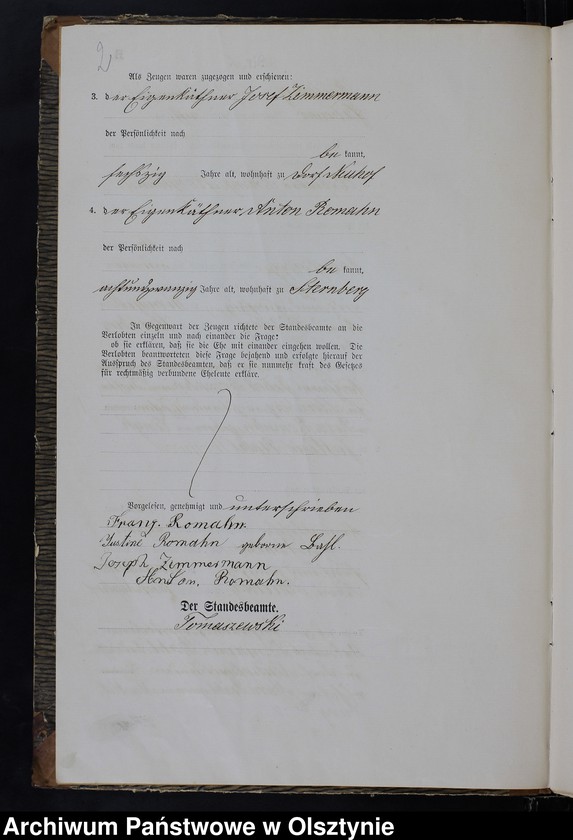 2
Als Zeugen waren zugezogen und erschienen:
3. der Eigenkäthner Josef Zimmermann
der Persönlichkeit nach
be kannt,
sechszig Jahre alt, wohnhaft zu Dorf Neuhof
4. der Eigenkäthner Anton Romahn
der Persönlichkeit nach
be kannt,
achtundzwanzig Jahre alt, wohnhaft zu Sternberg
In Gegenwart der Zeugen richtete der Standesbeamte an die
Verlobten einzeln und nach einander die Frage:
ob sie erklären, daß sie die Ehe mit einander eingehen wollen. Die
Verlobten beantworteten diese Frage bejahend und erfolgte hierauf der
Ausspruch des Standesbeamten, daß er sie nunmehr kraft des Gesetzes
für rechtmäßig verbundene Eheleute erkläre.
Vorgelesen, genehmigt und unterschrieben
Franz Romahn.
Justine Romahn geborne
Joseph Zimmermann
Anton Romahn.
Der Standesbeamte.
Tomaszewski
Archiwum Państwowe w Olsztynie